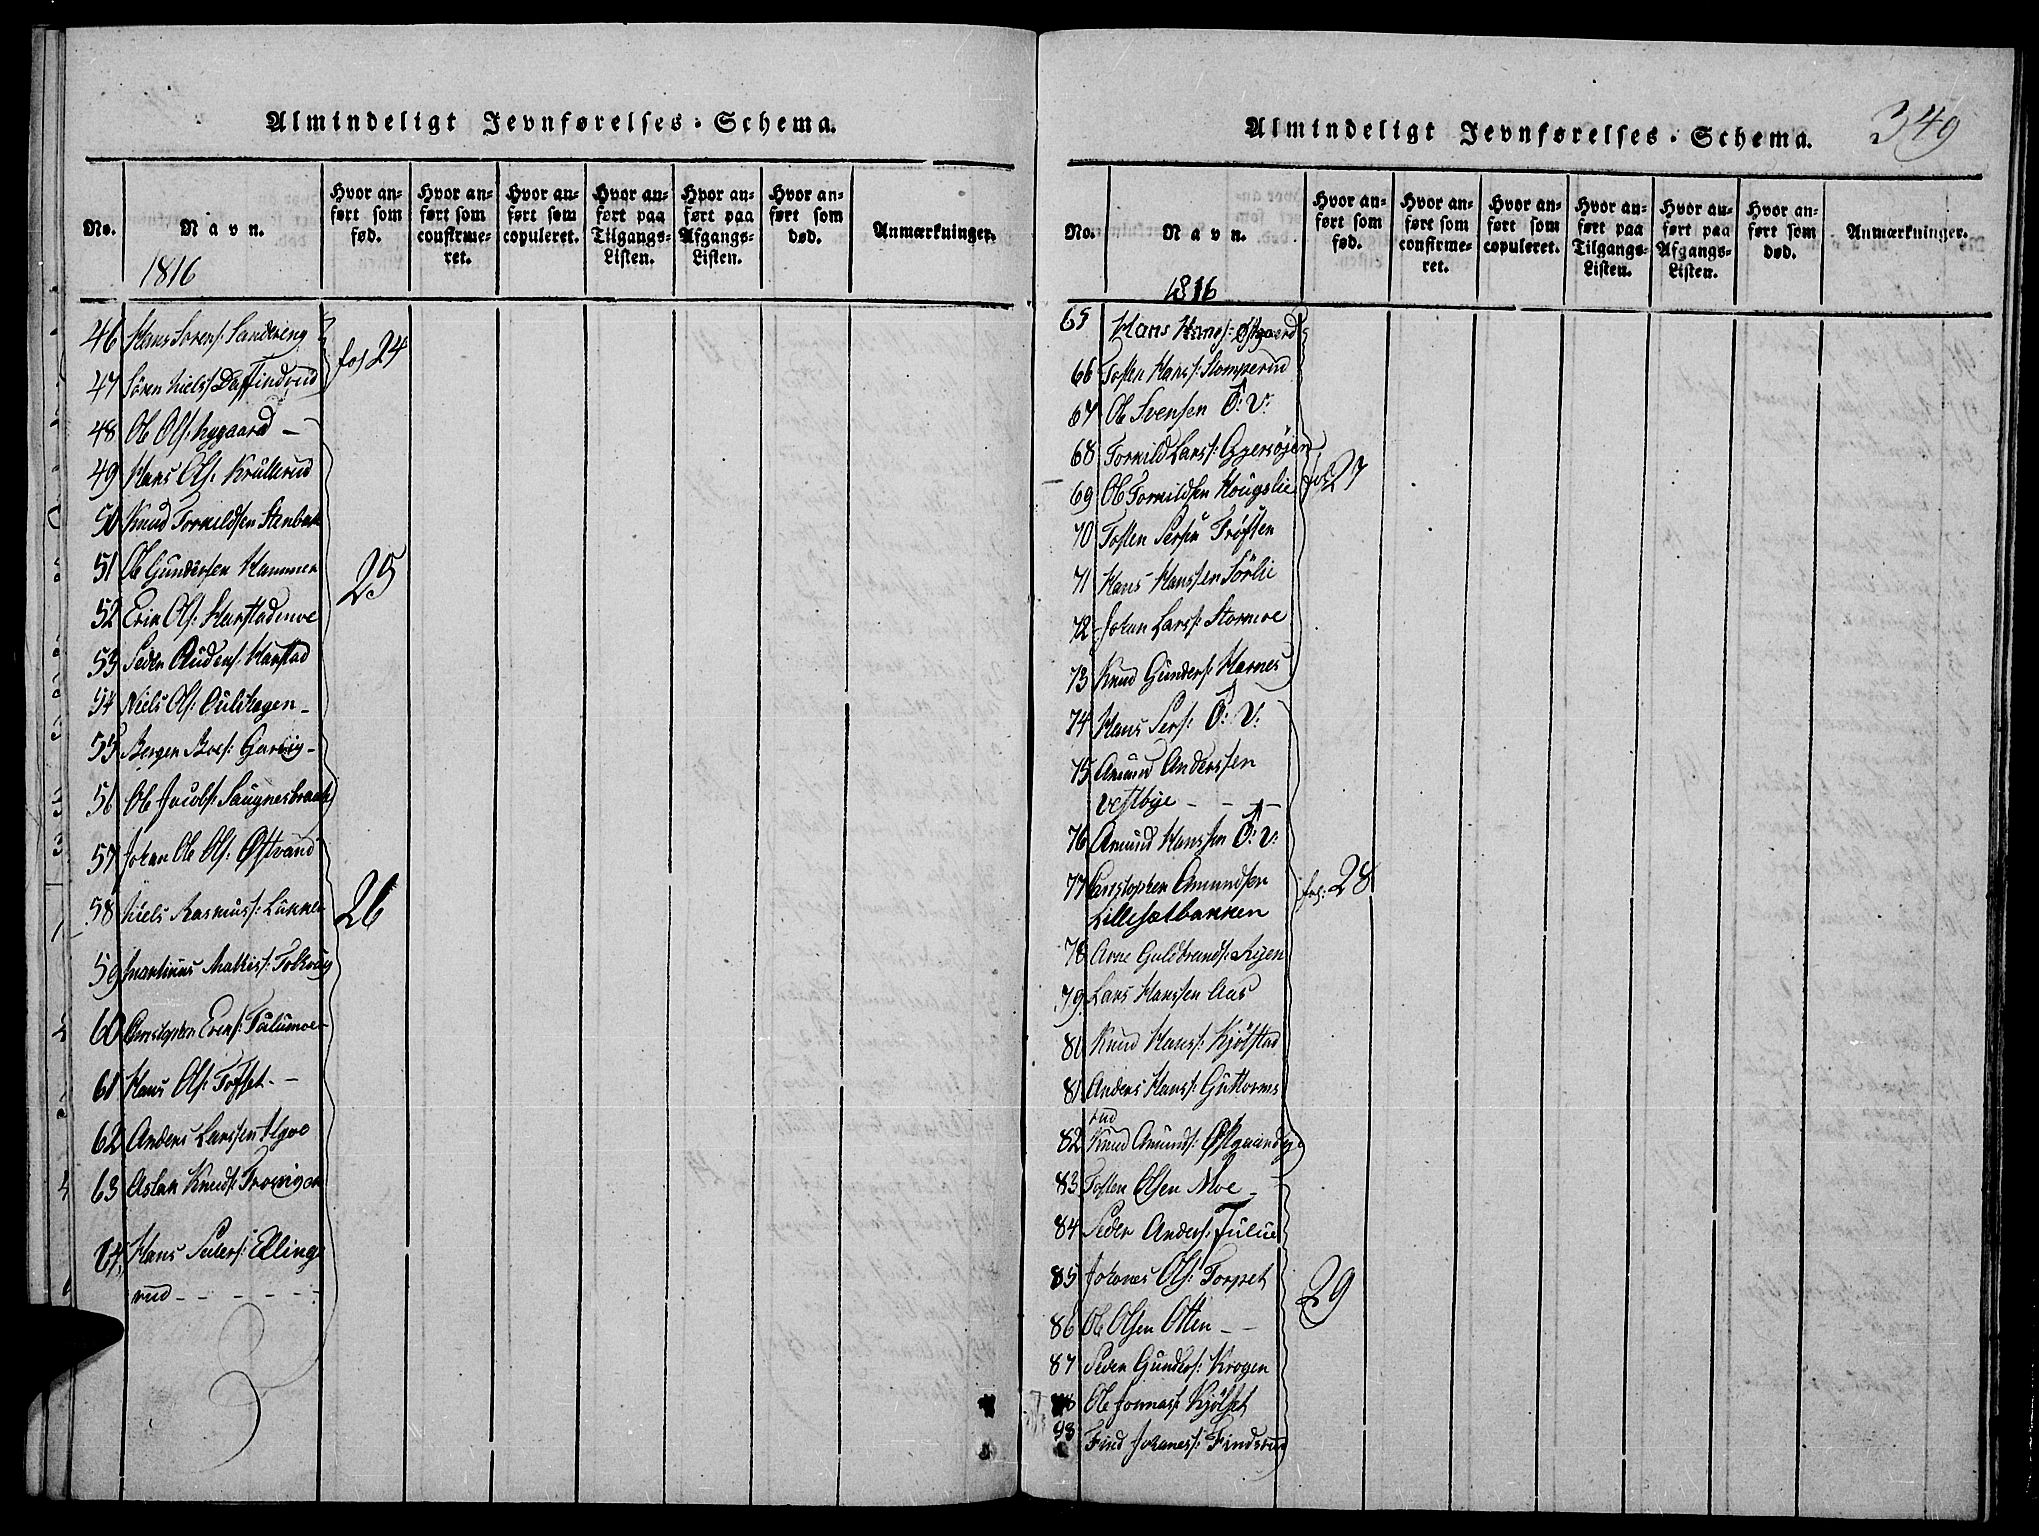 Almindeligt Jevnførelses-Schema.
No.
Navn.
1816
Hvor anført som fød.
Hvor anført som confirmeret.
Hvor anført som copuleret.
Hvor anført paa Tilgangs-Listen.
Hvor anført paa Afgangs-Listen.
Hvor anført som død.
Anmærkninger.
46 Hans Sørens: Sandereng
fol 24
47 Sören Niels:
48 Ole Ols: Nygaard —
49 Hans Ols: Krullerud
50 Knud Torkildsen
51 Ole Gundersen Hammer
25
52 Erik Ols: Harstadmoe
53 Peder Audens: Harstad
54 Niels Ols: —
55 Bergen
56 Ole Jacobs: Saugnesbraaten
57 Johan Ole Ols: Østvand
58 Niels Rasmus: Lunken
26
59 Martinus Mathis:
60 Christopher Evens:
61 Hans Ols: Tofset —
62 Anders Larssen
63 Aslak Knuds:
64 Hans Peders: Ellings
rud — — — — —
Almindeligt Jevnførelses-Schema.
349
No.
Navn.
1816
Hvor anført som fød.
Hvor anført som confirmeret.
Hvor anført som copuleret.
Hvor anført paa Tilgangs-Listen.
Hvor anført paa Afgangs-Listen.
Hvor anført som død.
Anmærkninger.
65 Hans Hans: Østgaard
66 Tosten Hans: Stomperud
67 Ole Svensen Ô: V:
68 Torkild Lars:
69 Ole Torkildsen Hougslie
fol: 27
70 Tosten Persen Trøften
71 Hans Hanssen Sörlie
72 Johan Lars: Stormoe
73 Knud Gunders: Harnes
74 Hans Pers: Ô: V:
75 Amund Anderssen
Vestbye — — —
76 Amund Hanssen Ô: V:
77 Christopher Amundsen
Lillesætbakken
fol: 28
78 Arne Guldbrands: Ryen
79 Lars Hanssen Aas
80 Knud Hans: Kjölstad
81 Anders Hans: Guttorms
rud
82 Knud Amunds:
83 Tosten Olsen Moe —
84 Peder Anders: Julie
85 Johanes Ols: Torpet
29
86 Ole Olsen Otten — —
87 Peder Gunders: Krogen
Ole Jonnas: Kjölset
98 Find Johanes: Findsrud